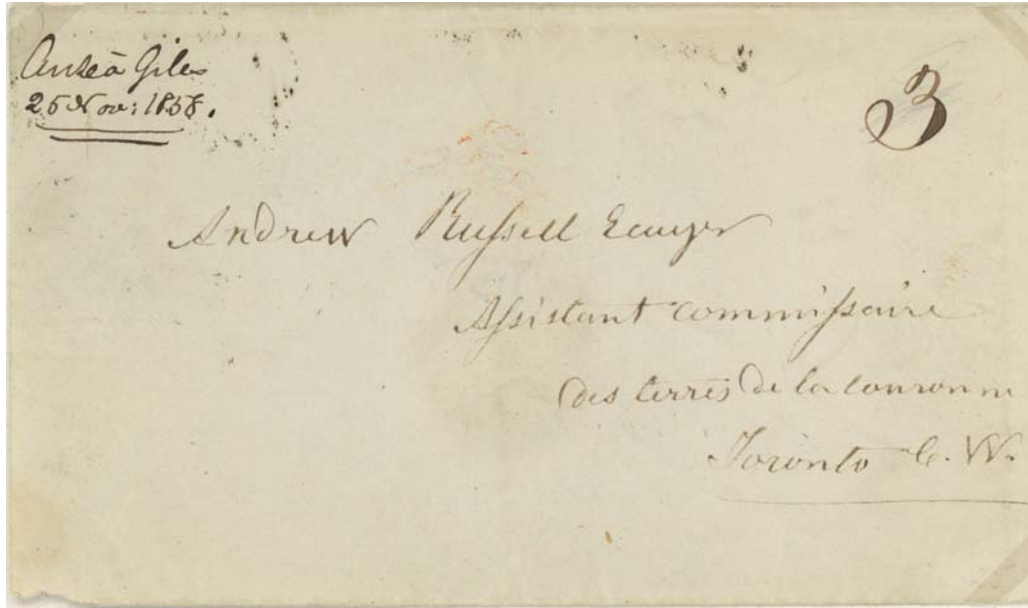 Anse à Giles
25 Nov: 1858.
3
Andrew Russell Ecuyer
Assistant commissaire
des terres de la couronne
Toronto C. W.